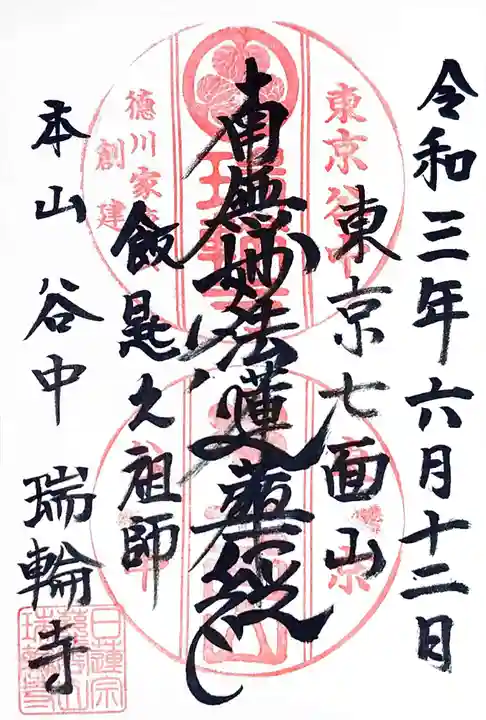 令和三年六月十二日
東京七面山
南無妙法蓮華経
飯匙大祖師
本山 谷中 瑞輪寺
東京谷
徳川家
創建
日蓮宗
慈雲山
瑞輪寺